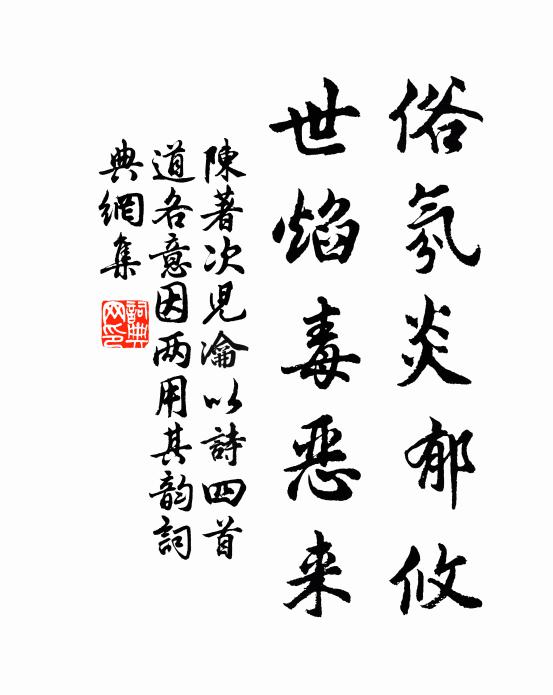 俗氛炎郁攸
世焰毒恶来
陳著次兒瀹以詩四首
道各意因两用其韵詞
典網集
詞典網印